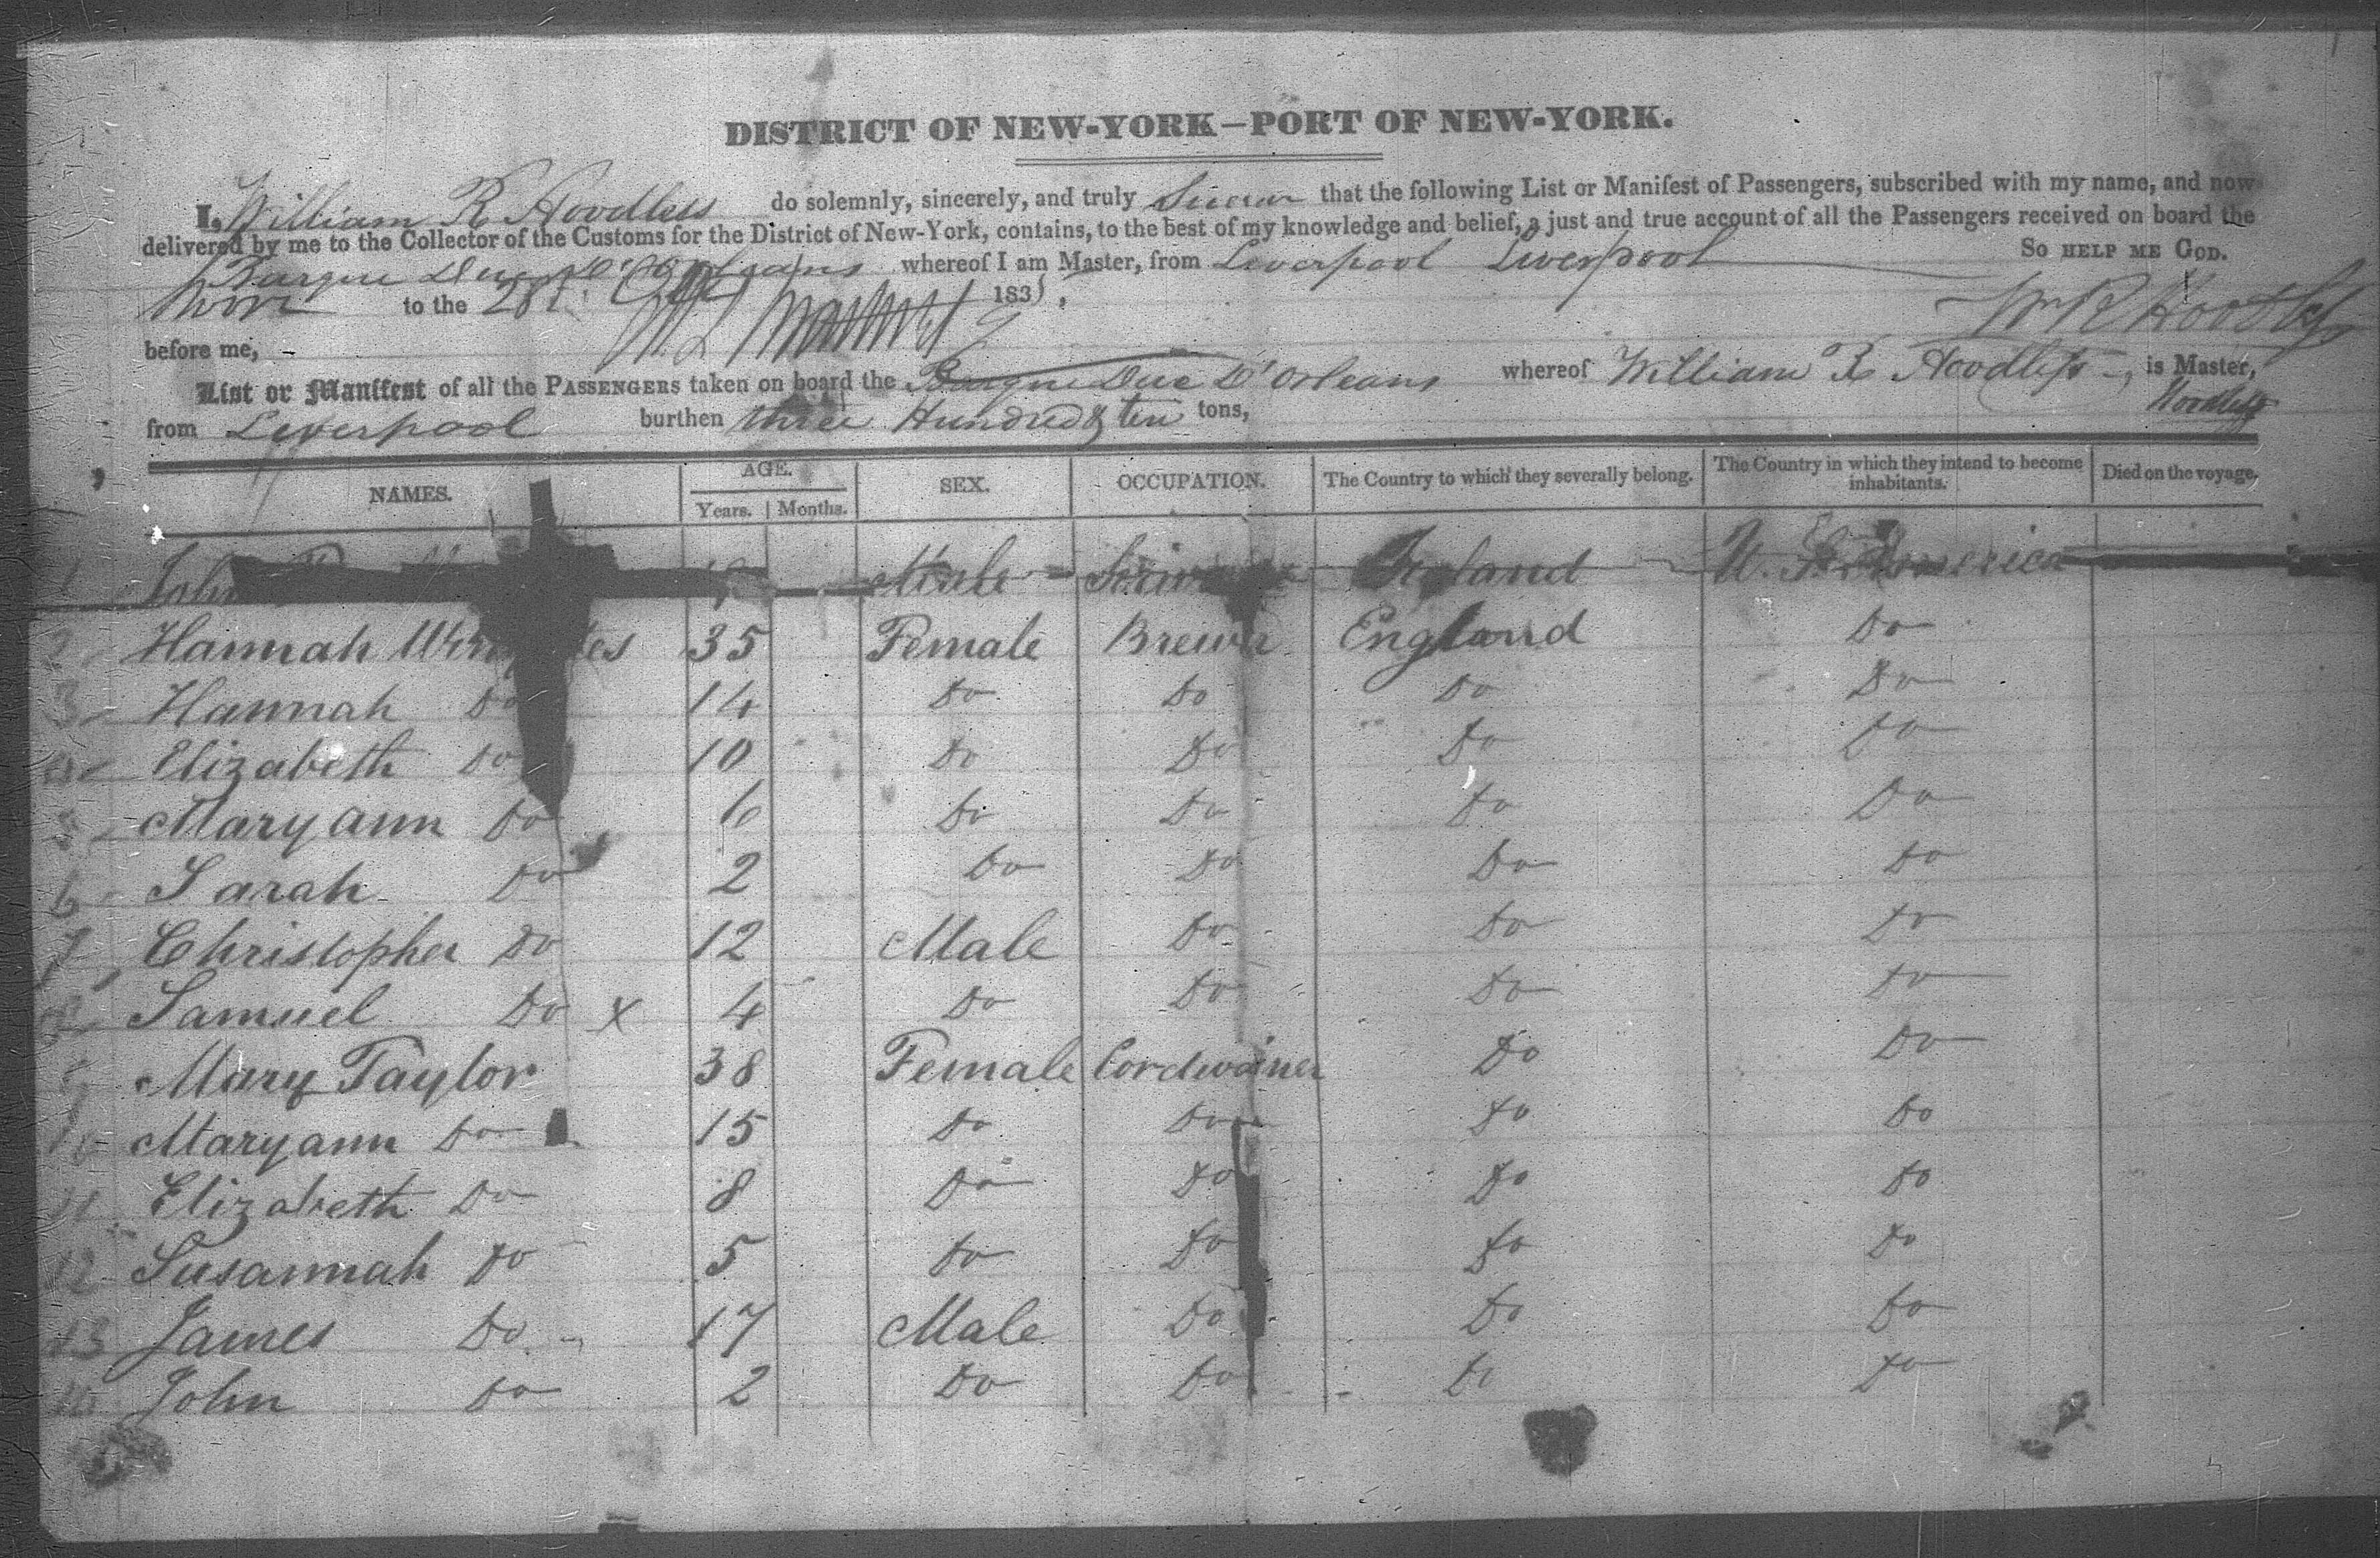 DISTRICT OF NEW-YORK—PORT OF NEW-YORK.
I, William R Hoodless do solemnly, sincerely, and truly Swear that the following List or Manifest of Passengers, subscribed with my name, and now
delivered by me to the Collector of the Customs for the District of New-York, contains, to the best of my knowledge and belief, a just and true account of all the Passengers received on board the
Barque Duc D'Orleans whereof I am Master, from Liverpool Liverpool So HELP ME GOD.
Sworn to the 28 183
Wm R Hoodless
before me,
List or Manifest of all the PASSENGERS taken on board the Barque Duc D'Orleans whereof William R Hoodless, is Master,
Hoodless
from Liverpool burthen three Hundred & ten tons,
NAMES. AGE. Years. Months. SEX. OCCUPATION. The Country to which they severally belong. The Country in which they intend to become inhabitants. Died on the voyage.
1 John Male Ireland U. S. America
2 Hannah 35 Female Brewer England Do
3 Hannah Do 14 Do Do Do Do
4 Elizabeth Do 10 Do Do Do Do
5 Maryann Do 6 Do Do Do Do
6 Sarah Do 2 Do Do Do Do
7 Christopher Do 12 Male Do Do Do
8 Samuel Do x 4 Do Do Do Do
9 Mary Taylor 38 Female Cordwainer Do Do
10 Maryann Do 15 Do Do Do Do
11 Elizabeth Do 8 Do Do Do Do
12 Susannah Do 5 Do Do Do Do
13 James Do 17 Male Do Do Do
John Do 2 Do Do Do Do